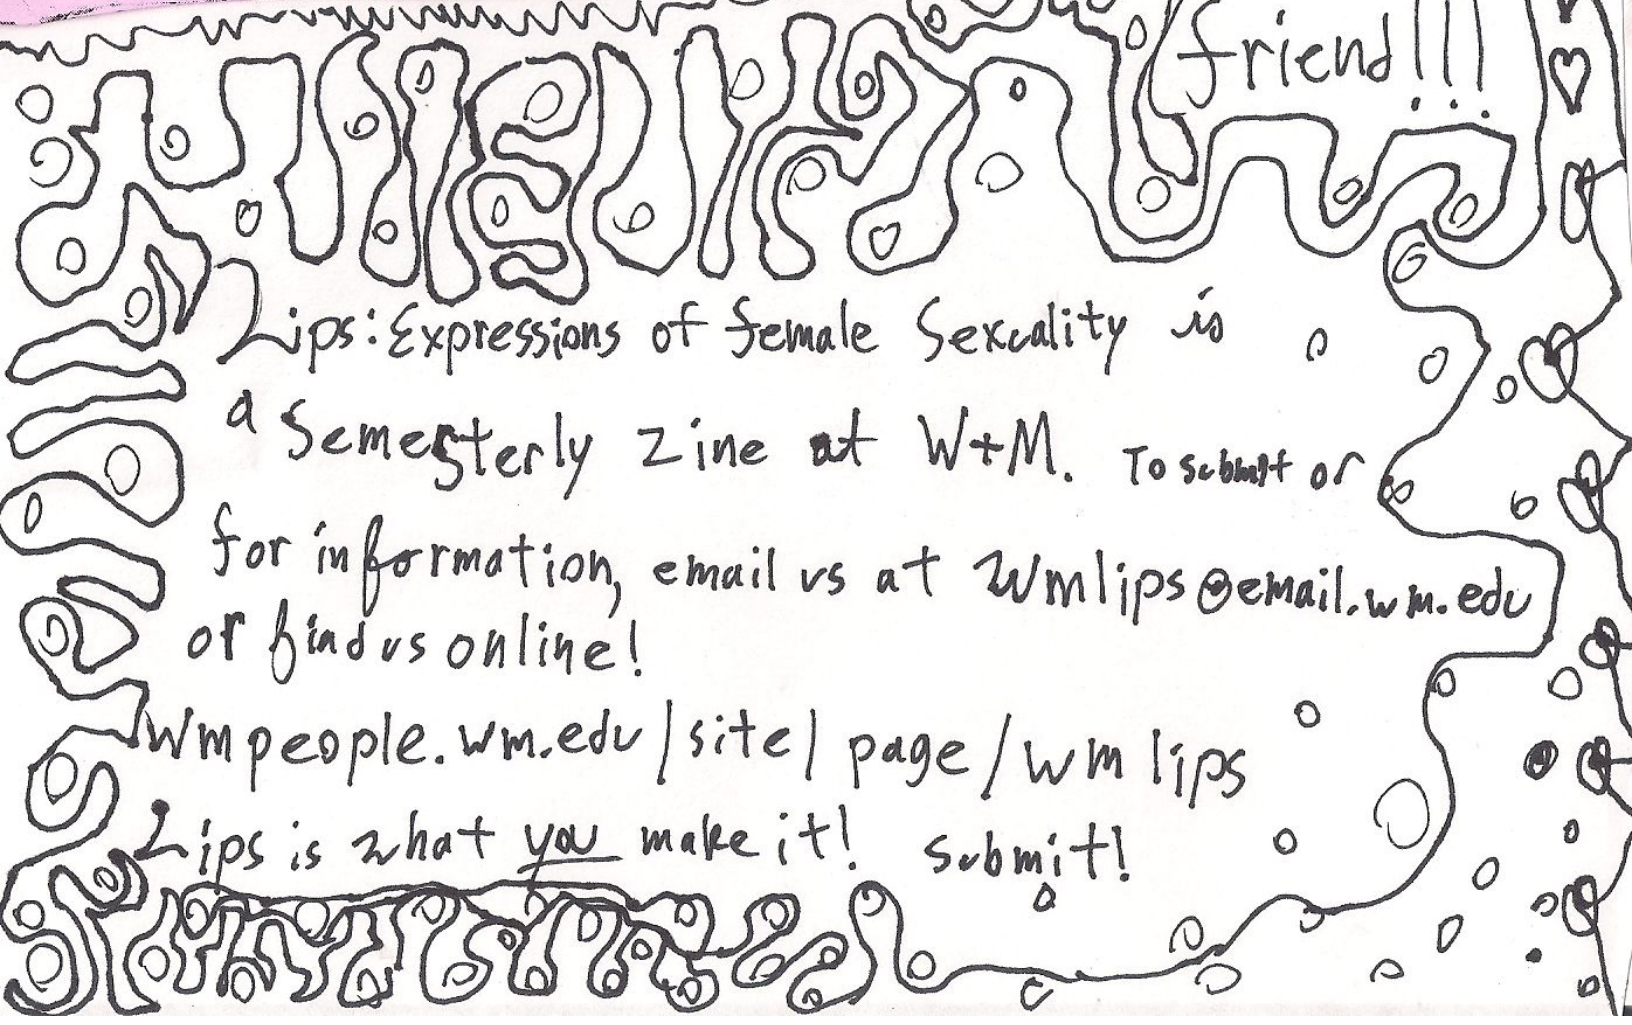 friend!!!
Lips: Expressions of female Sexuality is
a Semesterly zine at W+M. To submit or
for information, email us at wmlips@email.wm.edu
or find us online!
wmpeople.wm.edu/site/page/wmlips
Lips is what you make it! Submit!